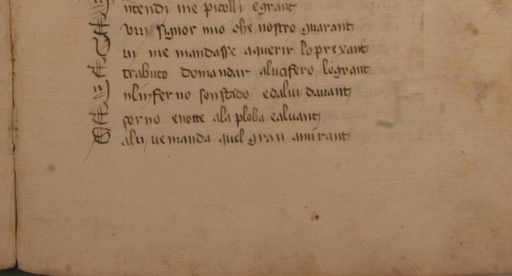 ntendi me picolli egrant
Un signor mio che nostro guarant
ui me mandasse aquerir lo prexant
trabuto domandar a lucifero logrant
nlinferno son stado e da lui davant
orno enotte ala ploba e al vant
alu ve manda quel gran amirant